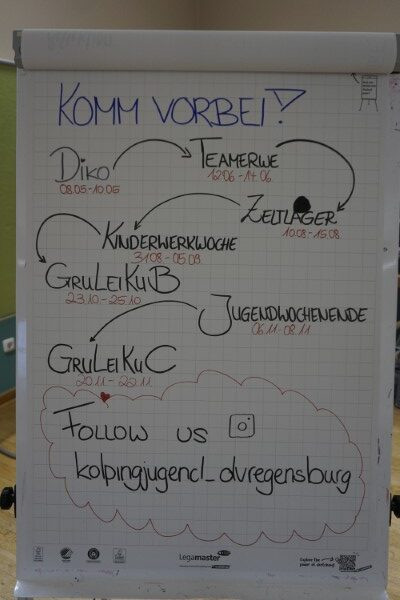 KOMM VORBEI!
DiKo
08.05.-10.05
TEAMERWE
12.06.-14.06.
ZELTLAGER
10.08.-15.08.
KINDERWERKWOCHE
31.08.-05.09
GRULEIKUB
23.10.-25.10
JUGENDWOCHENENDE
06.11.-08.11
GRULEIKUC
FOLLOW US
kolpingjugend_dvregensburg
Legamaster